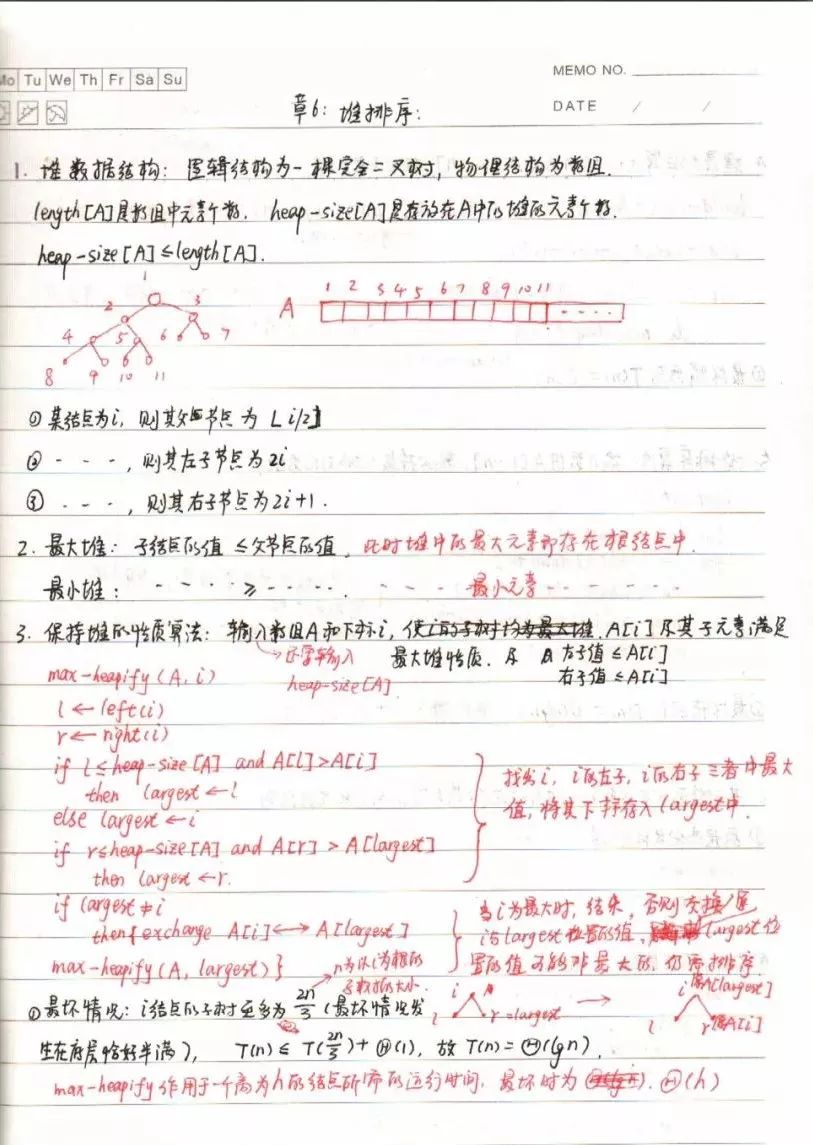 Mo Tu We Th Fr Sa Su
MEMO NO.
DATE / /
章6: 堆排序:
1. 堆数据结构: 逻辑结构为一棵完全二叉树, 物理结构为数组.
length[A]是数组中元素个数. heap-size[A]是存放在A中的堆的元素个数.
heap-size[A]≤length[A].
1
2 3
4 5 6 7
8 9 10 11
A 1 2 3 4 5 6 7 8 9 10 11
① 某结点为i, 则其父节点为 ⌊i/2⌋
② - - - , 则其左子节点为2i
③ - - - , 则其右子节点为2i+1.
2. 最大堆: 子结点的值 ≤父节点的值, 此时堆中的最大元素即存在根结点中.
最小堆: - - - - ≥ - - - - . - - - - 最小元素 - - - - - -
3. 保持堆的性质算法: 输入数组A和下标i, 使 A[i]及其子元素满足
→还需输入 最大堆性质. 及 左子值≤A[i]
heap-size[A] 右子值≤A[i]
max-heapify(A, i)
l ← left(i)
r ← right(i)
if l≤heap-size[A] and A[l]>A[i]
then largest ← l
else largest ← i
if r≤heap-size[A] and A[r] > A[largest]
then largest ← r.
找出i, i的左子, i的右子三者中最大
值, 将其下标存入largest中.
if largest ≠ i
then{exchange A[i]↔A[largest]
max-heapify(A, largest)}
当i为最大时, 结束, 否则交换
i与largest位置的值, largest位
置的值可能非最大的, 仍需排序.
n为以i为根的
子数树的大小.
① 最坏情况: i结点的子树至多为 2n/3 (最坏情况发
生在底层恰好半满), T(n) ≤ T(2n/3) + Θ(1), 故 T(n) = Θ(lgn).
i
l r=largest
→
i A[largest]
l r A[i]
max-heapify作用于一个高为h的结点所需的运行时间, 最坏时为 Θ(h)